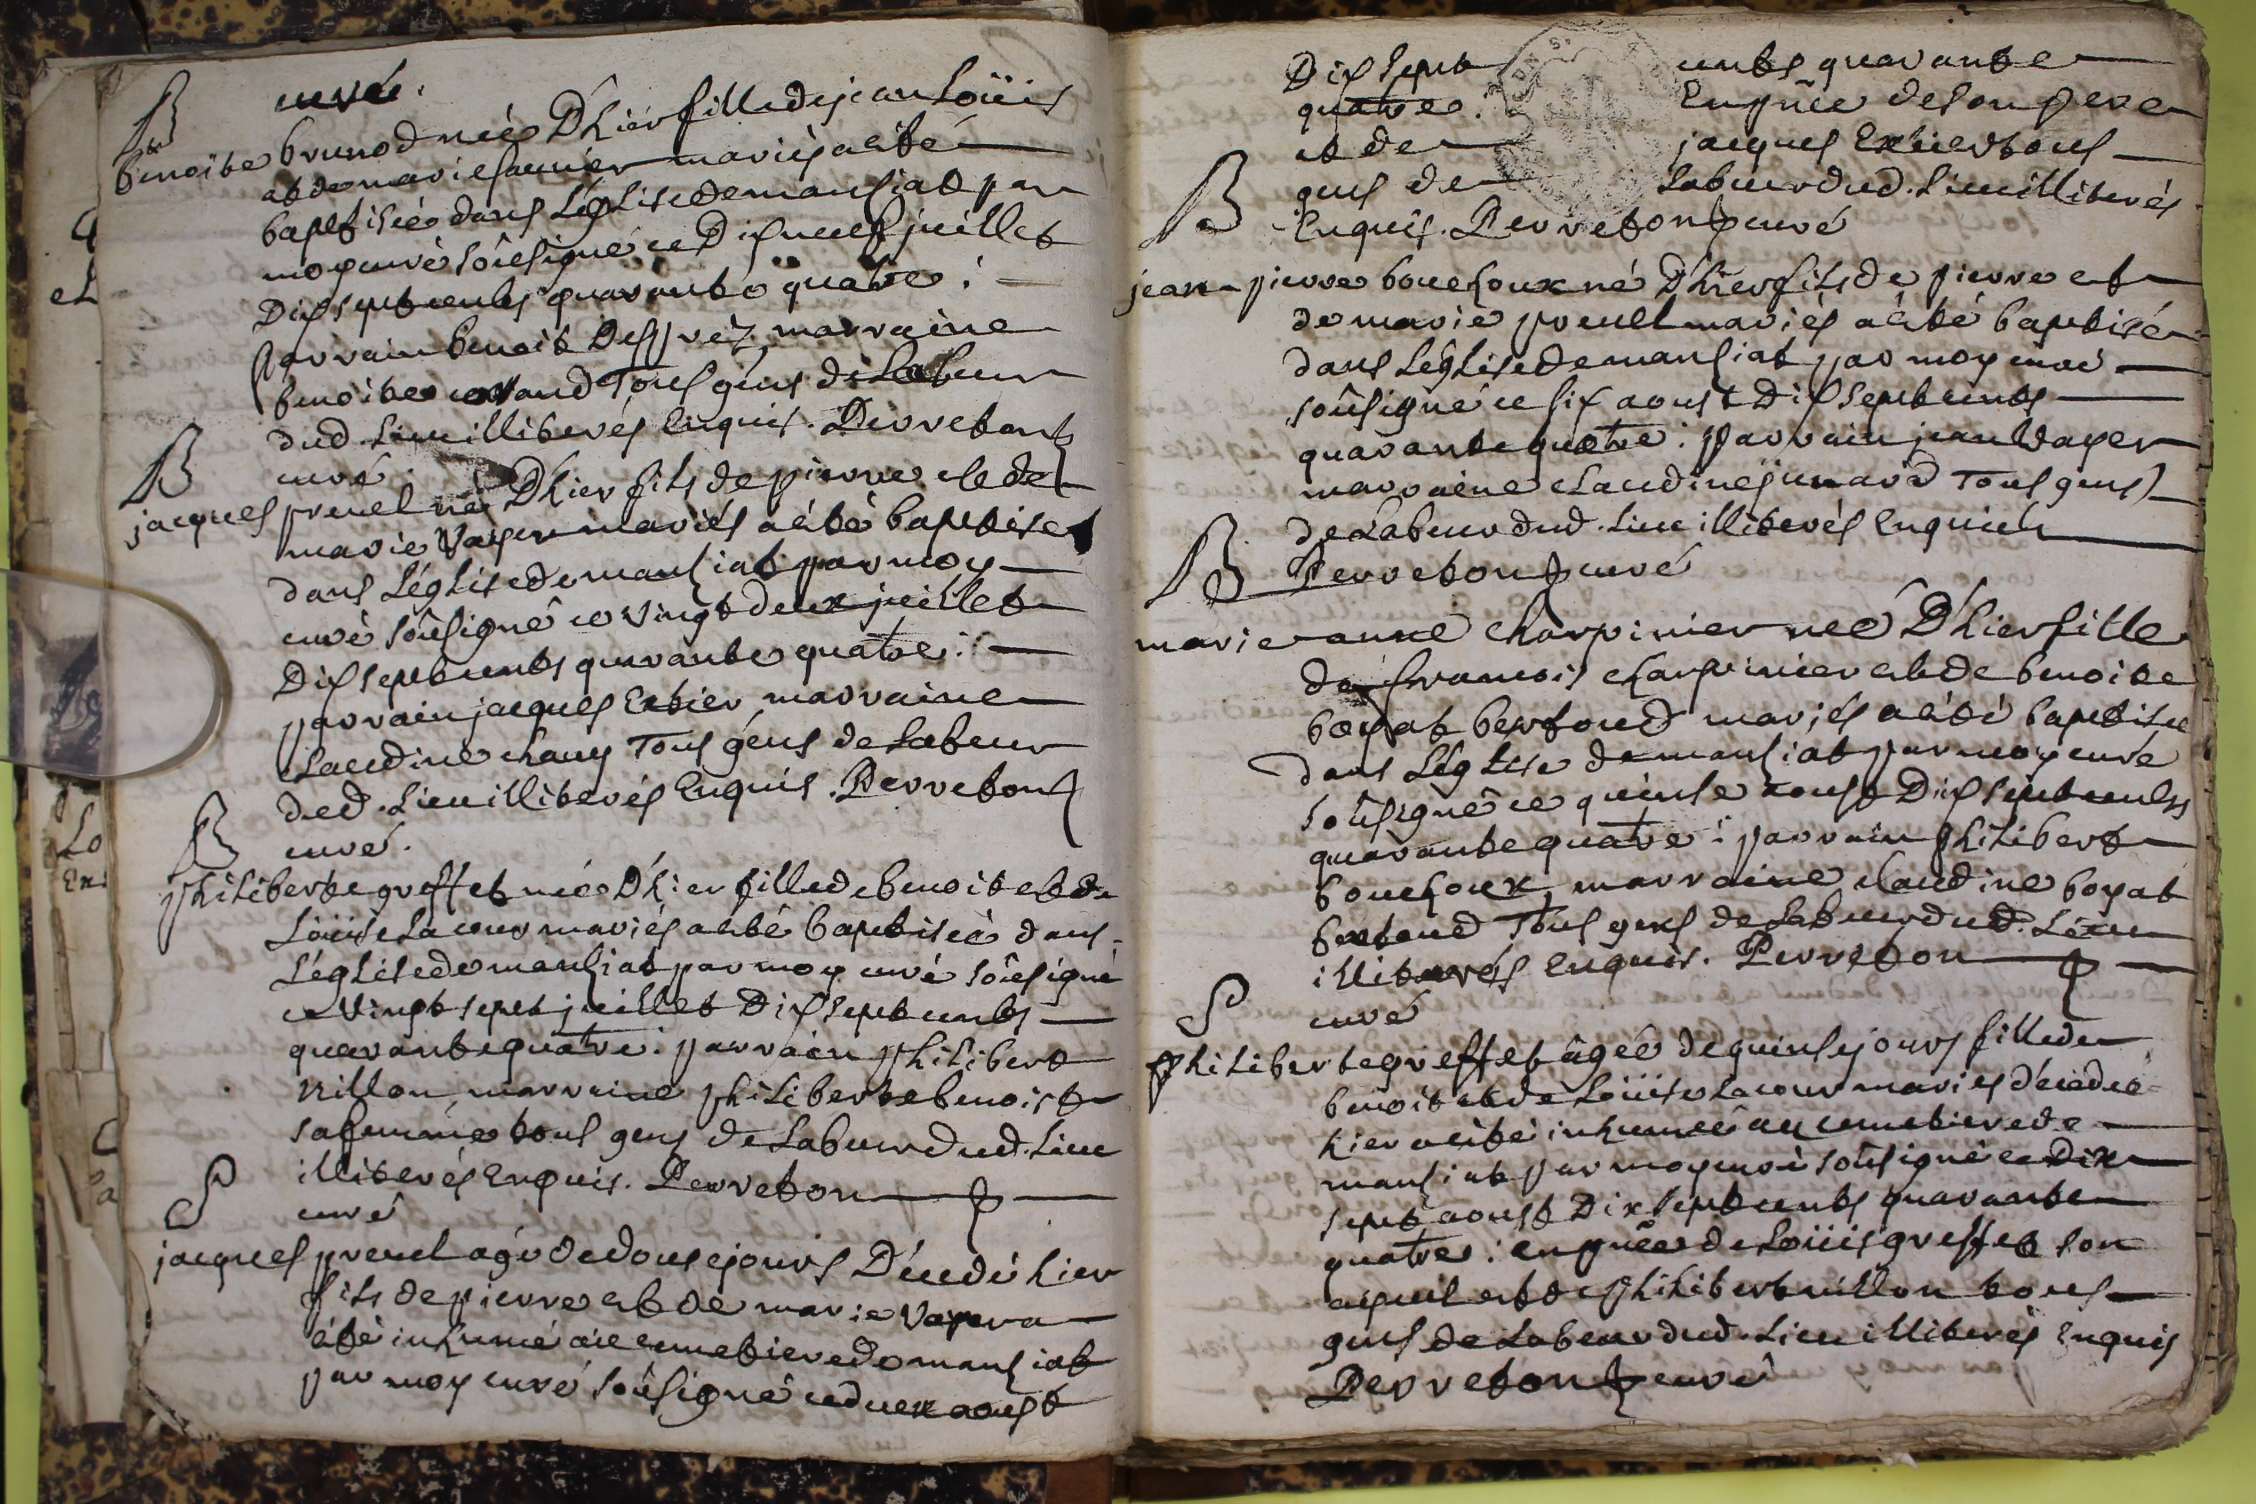 curé.
B
benoîte brunod née D'hier fille de jean Loüis
et de marie faunier mariés a été
baptisée dans L'église de manziat par
moy curé soûsigné ce Dixneuf juillet
Dix sept cents quarante quatre :
parrain benoit Desprez marraine
benoite Tous gens de Labeur
dud. Lieu illiterés Enquis. Perreton
curé.
B
jacques preuel né D'hier fils de pierre et de
marie Vayer mariés a été baptisé
dans L'église de manziat par moy
curé soûsigné ce vingt deux juillet
Dix sept cents quarante quatre :
parrain jacques Exkier marraine
claudine chany Tous gens de Labeur
dud. Lieu illiterés Enquis. Perreton
curé.
B
philiberte greffet née D'hier fille de benoit et de
Loüise Lacour mariés a été baptisée dans
L'église de manziat par moy curé soûsigné
ce Vingt sept juillet Dix sept cents
quarante quatre : parrain philibert
nillon marraine philiberte benoist
sa femme tous gens de Labeur dud. Lieu
illiterés Enquis. Perreton
curé
S
jacques preuel agé de douse jours Décédé hier
fils de pierre et de marie Vayer a
été inhumé au cemetiere de manziat
par moy curé soûsigné ce deux aoust
Dix sept cents quarante
quatre : En pnce de son pere
et de jacques Exkier tous
gens de Labeur dud. Lieu illiterés
Enquis. Perreton curé
B
jean pierre bouchoux né D'hier fils de pierre et
de marie preuel mariés a été baptisé
dans L'église de manziat par moy curé
soûsigné ce six aoust Dix sept cents
quarante quatre : parrain jean Vayer
marraine claudine junard Tous gens
de Labeur dud. Lieu illiterés Enquich
Perreton curé
B
marie anne charpinier neé D'hier fille
de francois charpinier et de benoite
boyat bertoud mariés a été baptisee
dans L'église de manziat par moy curé
soûsigné ce quinse aoust Dix sept cents
quarante quatre : parrain philibert
bouchoux marraine claudine boyat
bertoud Tous gens de Labeur dud. Lieu
illiterés Enquis. Perreton
curé
S
philiberte greffet âgée de quinse jours fille de
benoit et de Loüise Lacour mariés décédée
hier a été inhumeé au cemetiere de
manziat par moy curé soûsigné ce Dix
sept aoust Dix sept cents quarante
quatre : en pnce de Loüis greffet son
ayeul et de philibert nillon tous
gens de Labeur dud. Lieu illiterés Enquis
Perreton curé